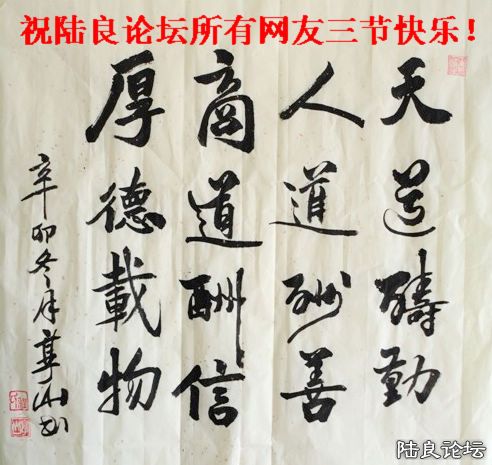 祝陆良论坛所有网友三节快乐！
天道酬勤
人道酬善
商道酬信
厚德載物
辛卯冬月
陆良论坛